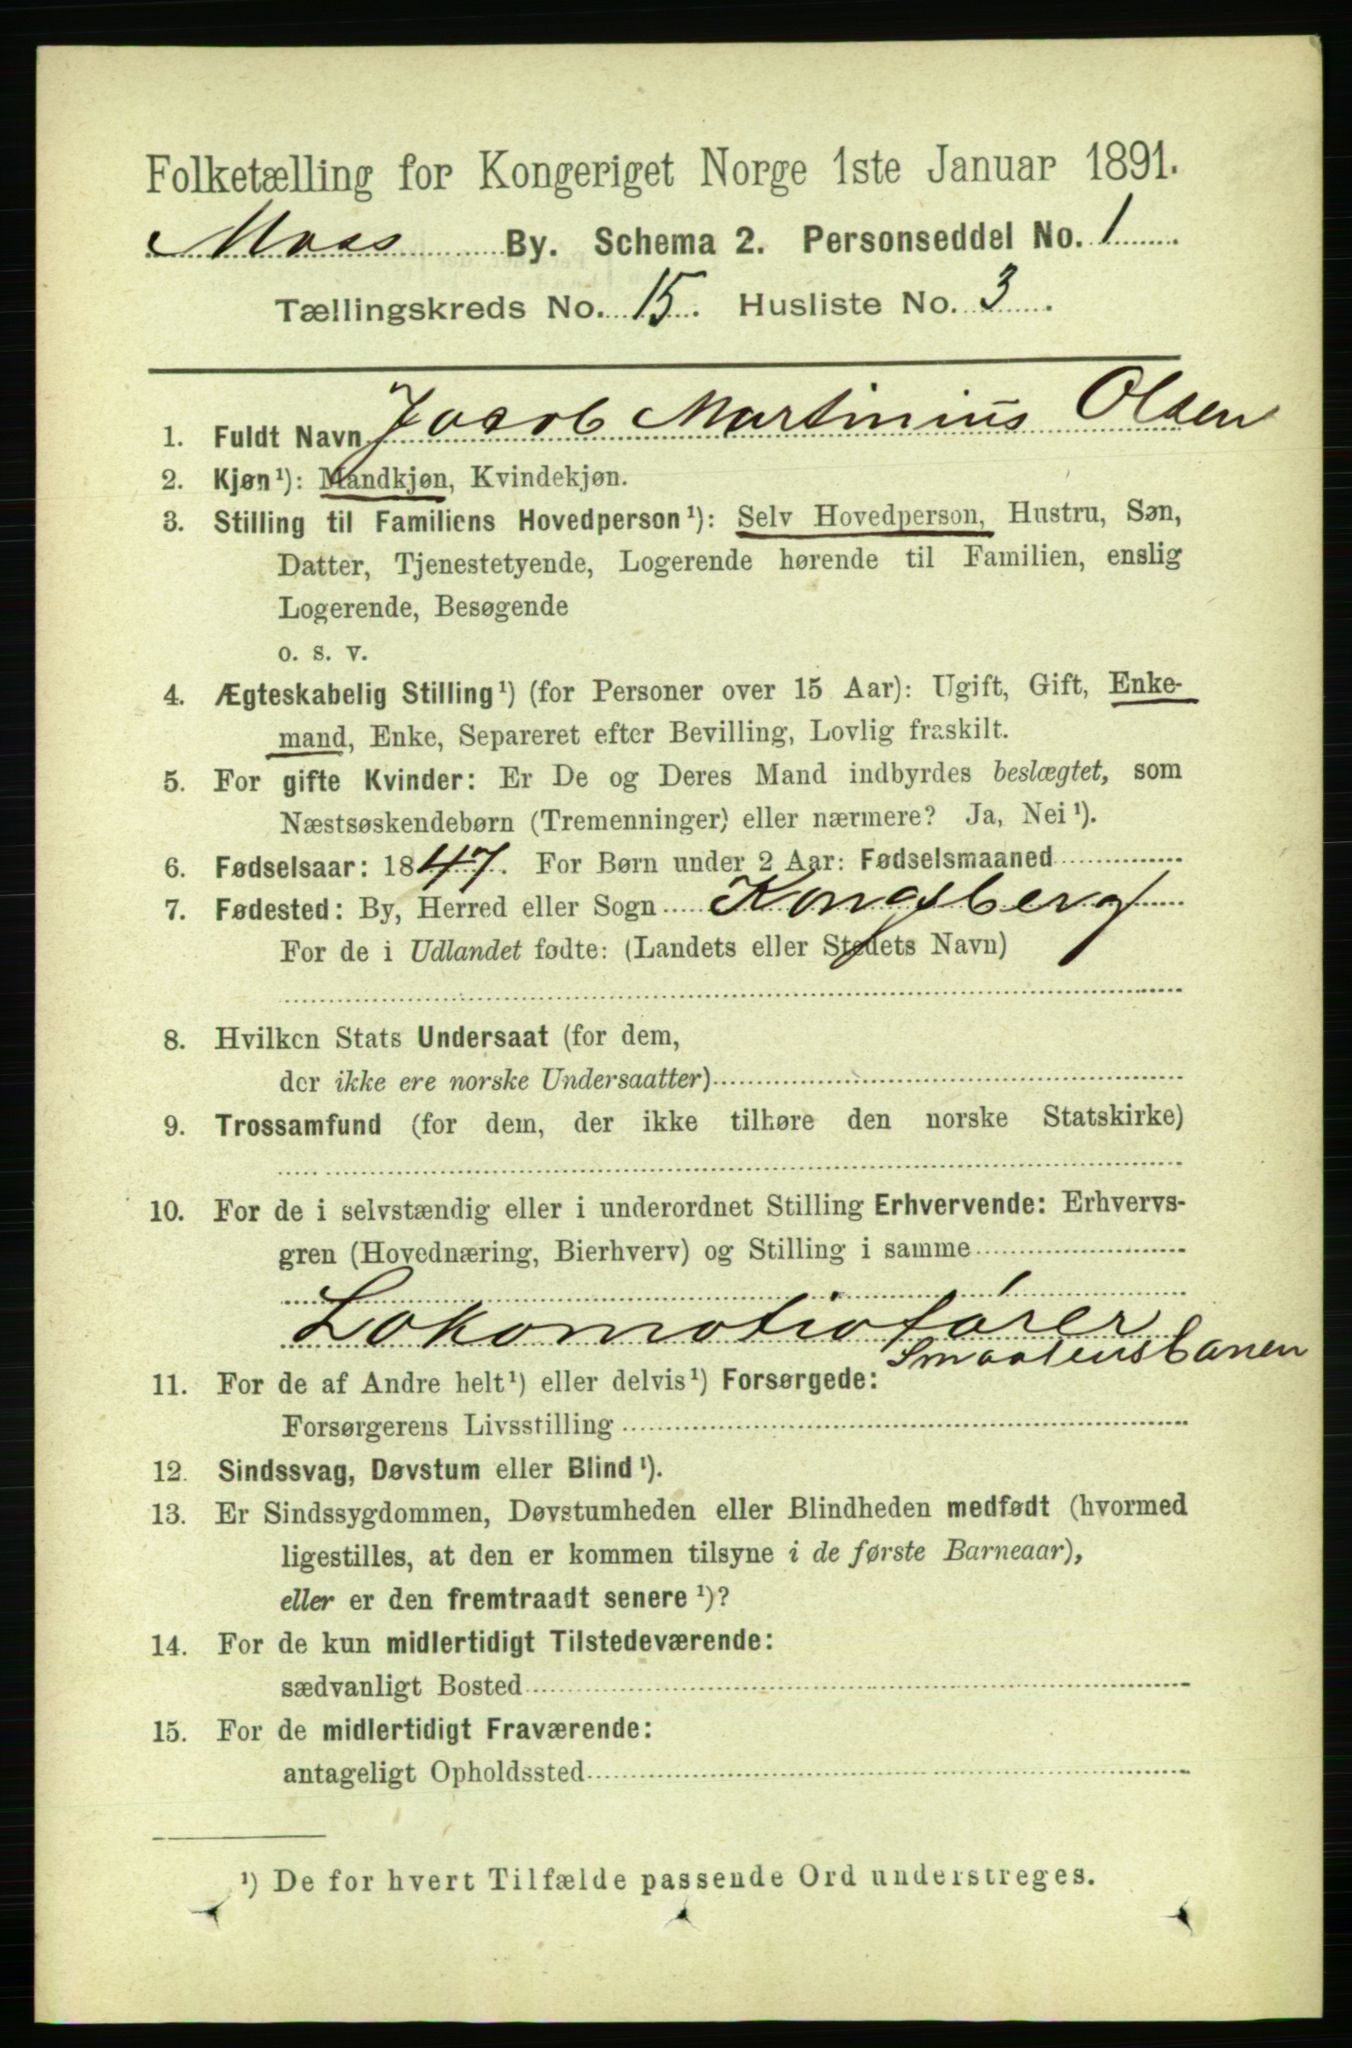 Folketælling for Kongeriget Norge 1ste Januar 1891.
Moss By. Schema 2. Personseddel No. 1
Tællingskreds No. 15. Husliste No. 3.
1. Fuldt Navn Jacob Martinius Olsen
2. Kjøn¹): Mandkjøn, Kvindekjøn.
3. Stilling til Familiens Hovedperson¹): Selv Hovedperson, Hustru, Søn,
Datter, Tjenestetyende, Logerende hørende til Familien, enslig
Logerende, Besøgende
o. s. v.
4. Ægteskabelig Stilling¹) (for Personer over 15 Aar): Ugift, Gift, Enke-
mand, Enke, Separeret efter Bevilling, Lovlig fraskilt.
5. For gifte Kvinder: Er De og Deres Mand indbyrdes beslægtet, som
Næstsøskendebørn (Tremenninger) eller nærmere? Ja, Nei¹).
6. Fødselsaar: 1847. For Børn under 2 Aar: Fødselsmaaned
7. Fødested: By, Herred eller Sogn Kongsberg
For de i Udlandet fødte: (Landets eller Stedets Navn)
8. Hvilken Stats Undersaat (for dem,
der ikke ere norske Undersaatter)
9. Trossamfund (for dem, der ikke tilhøre den norske Statskirke)
10. For de i selvstændig eller i underordnet Stilling Erhvervende: Erhvervs-
gren (Hovednæring, Bierhverv) og Stilling i samme
Lokomotivfører
Smaalensbanen
11. For de af Andre helt¹) eller delvis¹) Forsørgede:
Forsørgerens Livsstilling
12. Sindssvag, Døvstum eller Blind¹).
13. Er Sindssygdommen, Døvstumheden eller Blindheden medfødt (hvormed
ligestilles, at den er kommen tilsyne i de første Barneaar),
eller er den fremtraadt senere¹)?
14. For de kun midlertidigt Tilstedeværende:
sædvanligt Bosted
15. For de midlertidigt Fraværende:
antageligt Opholdssted
¹) De for hvert Tilfælde passende Ord understreges.